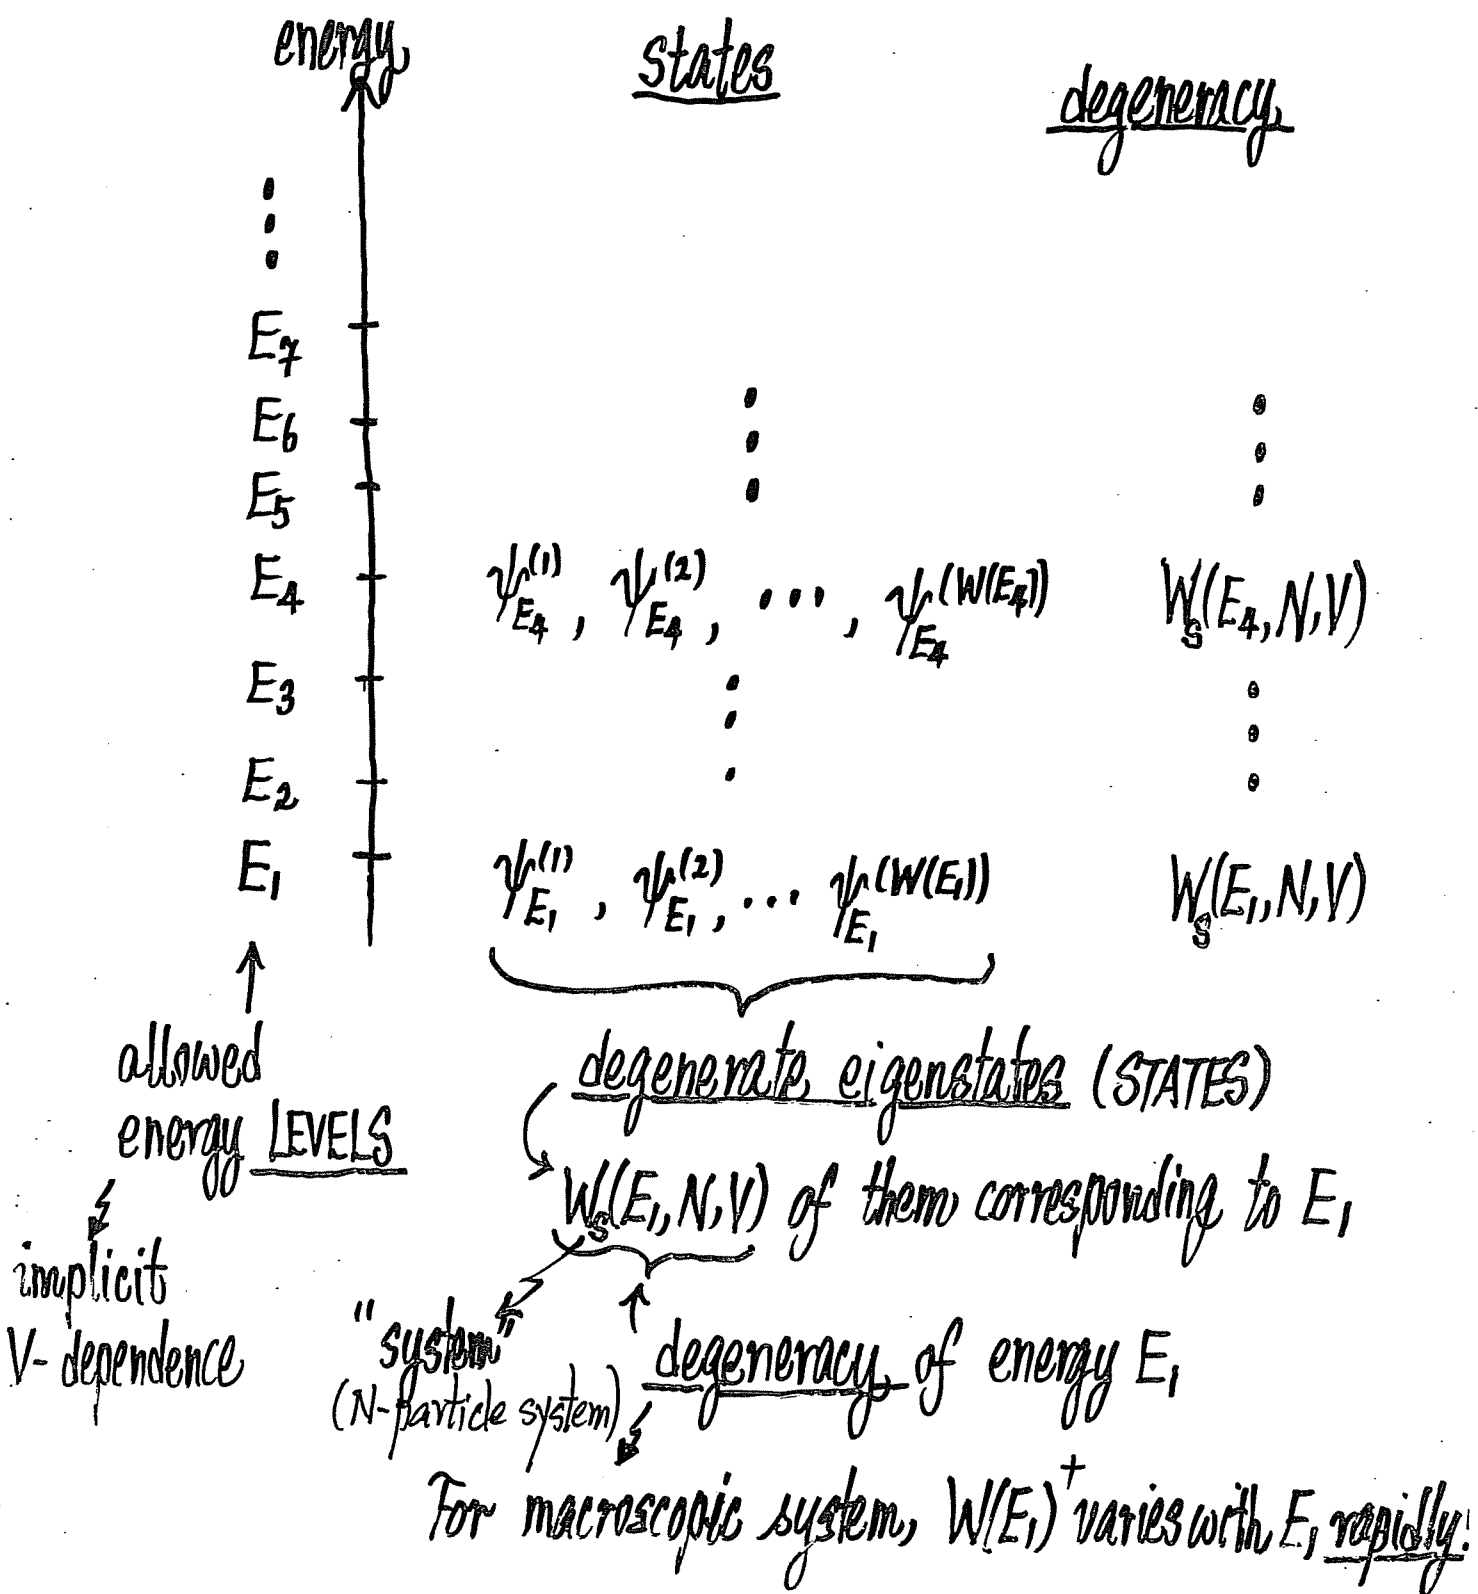 energy states degeneracy
⋮
E₇
E₆ ⋮ ⋮
E₅
E₄ ψ_{E₄}^{(1)}, ψ_{E₄}^{(2)}, ⋯, ψ_{E₄}^{(W(E₄))} W_S(E₄,N,V)
E₃ ⋮ ⋮
E₂
E₁ ψ_{E₁}^{(1)}, ψ_{E₁}^{(2)}, ⋯ ψ_{E₁}^{(W(E₁))} W_S(E₁,N,V)
allowed
energy LEVELS
implicit
V-dependence
degenerate eigenstates (STATES)
W_S(E₁,N,V) of them corresponding to E₁
"system"
(N-particle system)
degeneracy of energy E₁
For macroscopic system, W(E₁)⁺ varies with E₁ rapidly!